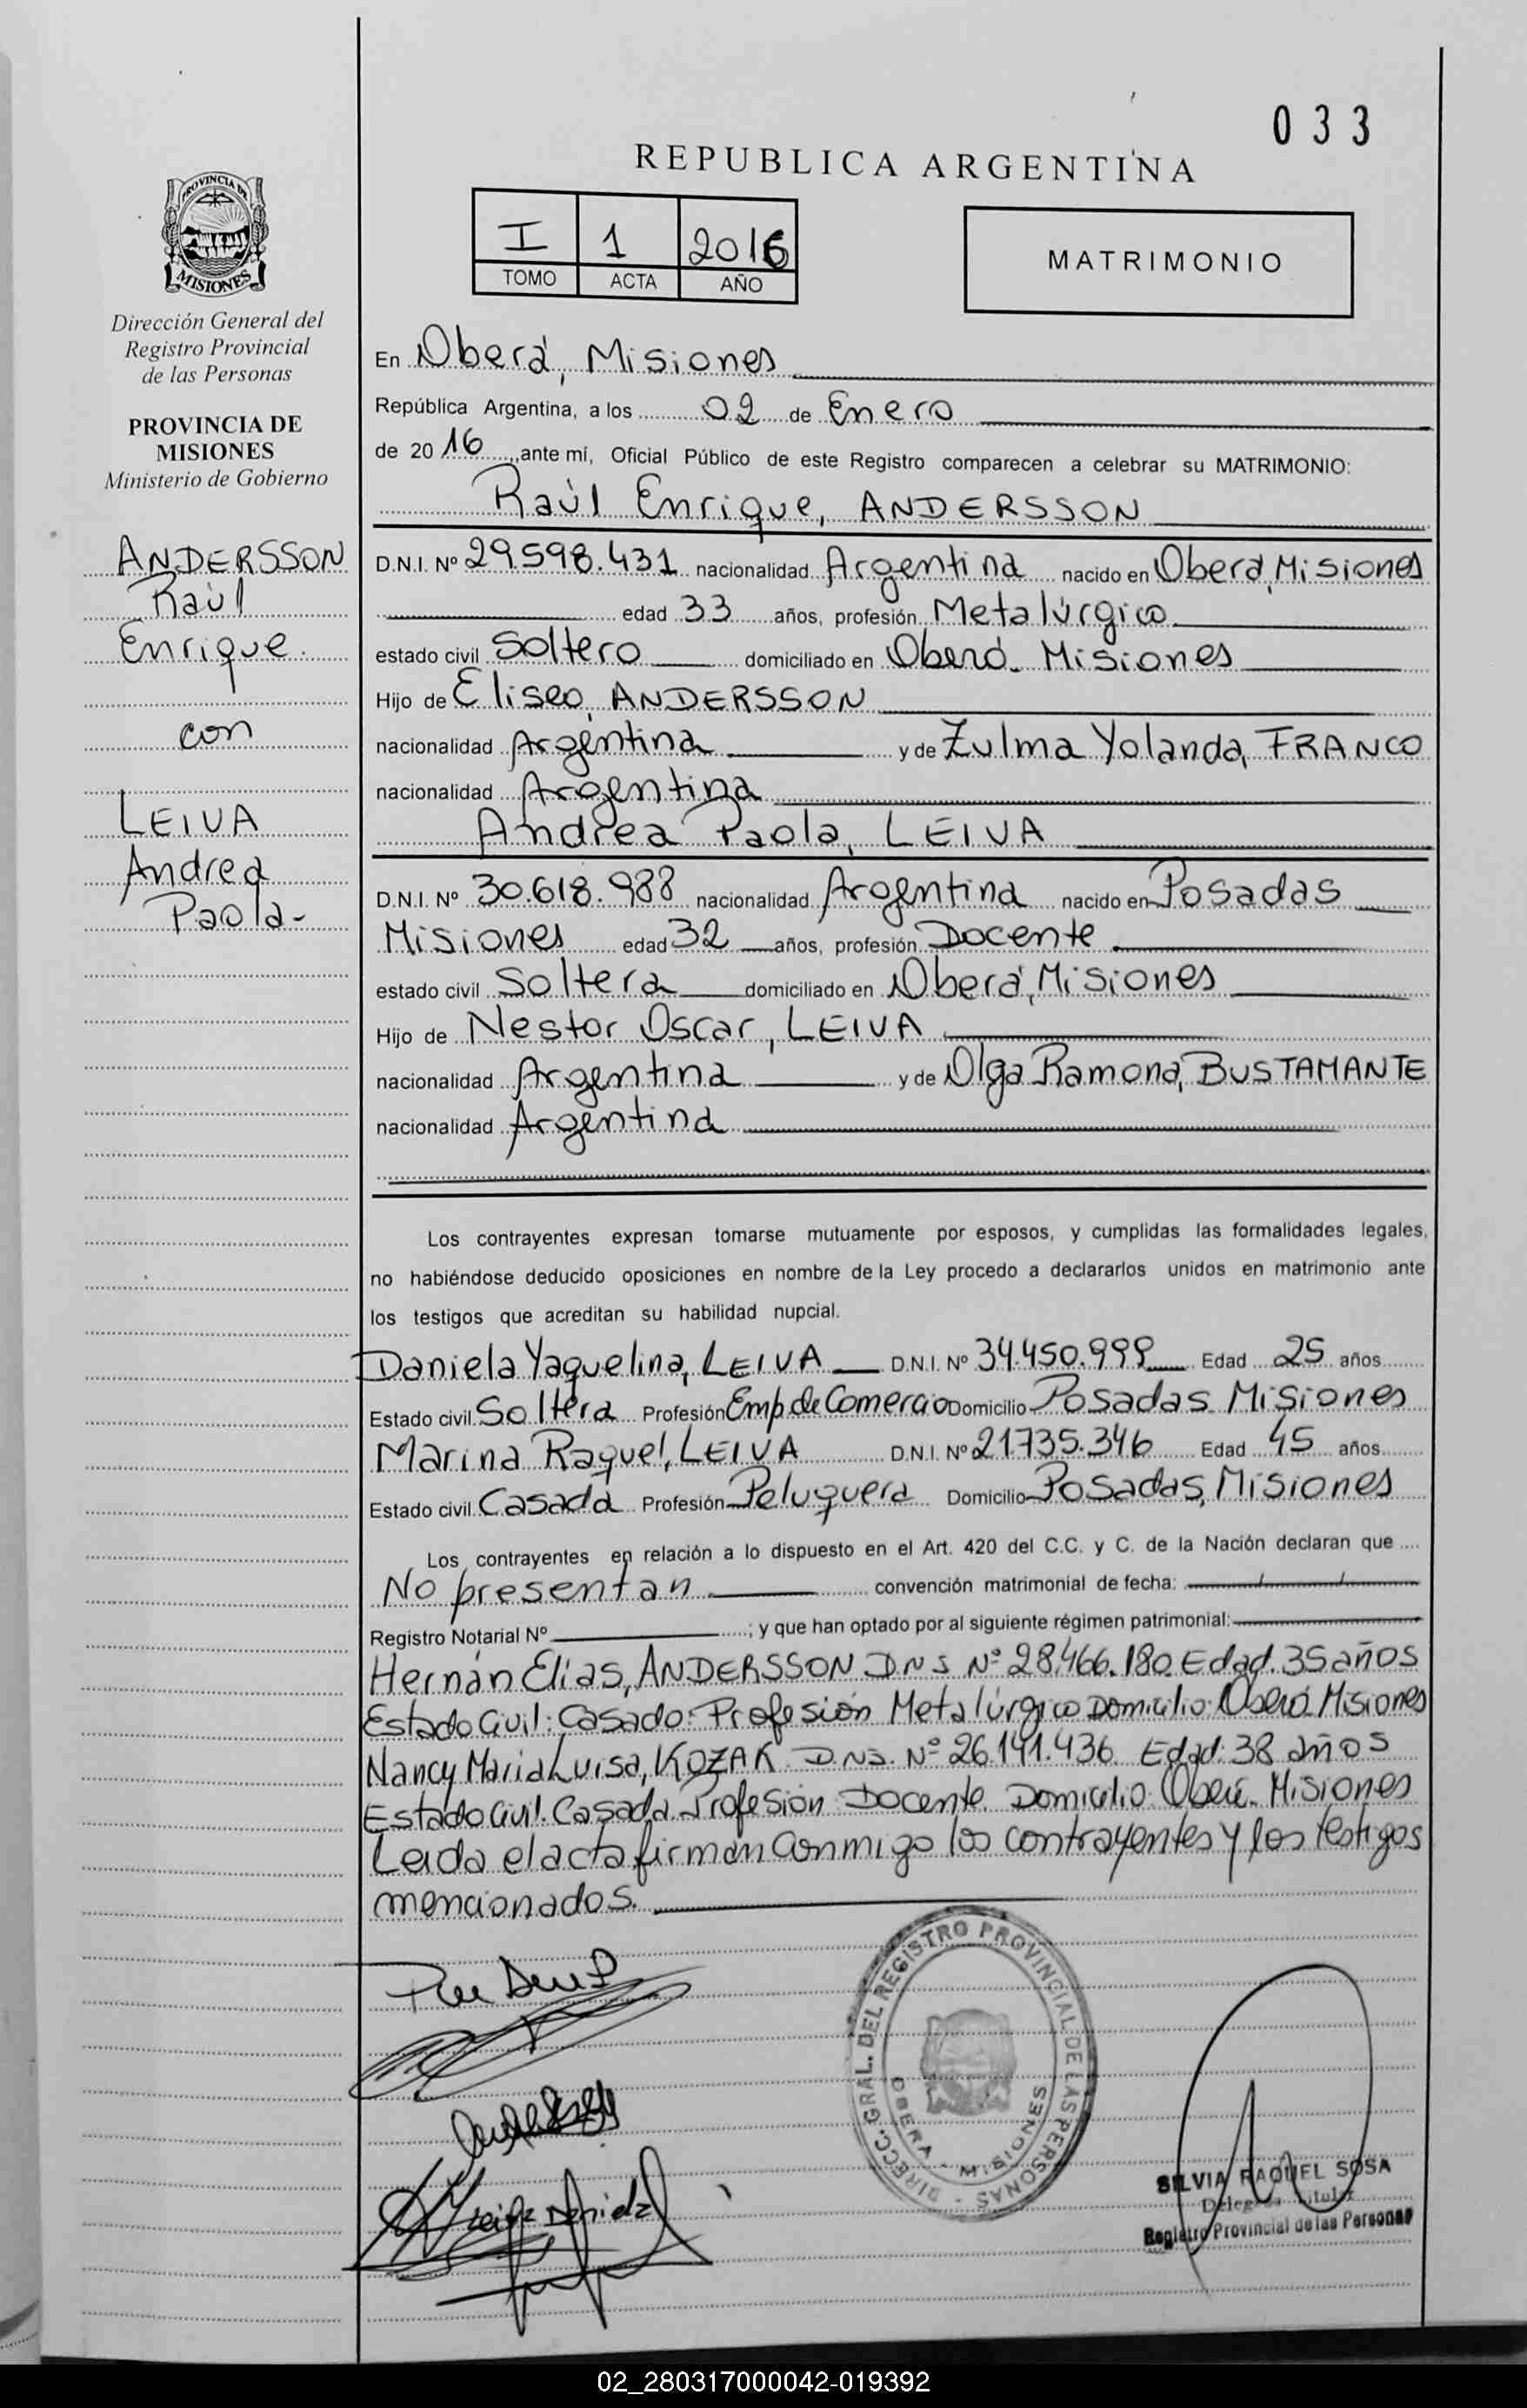 033
REPUBLICA ARGENTINA
I 1 2016
TOMO ACTA AÑO
MATRIMONIO
PROVINCIA DE
MISIONES
Dirección General del
Registro Provincial
de las Personas
PROVINCIA DE
MISIONES
Ministerio de Gobierno
ANDERSSON
Raúl
Enrique
con
LEIVA
Andrea
Paola-
En Oberá, Misiones
República Argentina, a los 02 de Enero
de 2016, ante mí, Oficial Público de este Registro comparecen a celebrar su MATRIMONIO:
Raúl Enrique, ANDERSSON
D.N.I. Nº 29.598.431 nacionalidad Argentina nacido en Oberá, Misiones
edad 33 años, profesión Metalúrgico
estado civil Soltero domiciliado en Oberá- Misiones
Hijo de Eliseo, ANDERSSON
nacionalidad Argentina y de Zulma Yolanda, FRANCO
nacionalidad Argentina
Andrea Paola, LEIVA
D.N.I. Nº 30.618.988 nacionalidad Argentina nacido en Posadas
Misiones edad 32 años, profesión Docente
estado civil Soltera domiciliado en Oberá, Misiones
Hijo de Nestor Oscar, LEIVA
nacionalidad Argentina y de Olga Ramona, BUSTAMANTE
nacionalidad Argentina
Los contrayentes expresan tomarse mutuamente por esposos, y cumplidas las formalidades legales,
no habiéndose deducido oposiciones en nombre de la Ley procedo a declararlos unidos en matrimonio ante
los testigos que acreditan su habilidad nupcial.
Daniela Yaquelina, LEIVA D.N.I. Nº 34.450.999 Edad 25 años
Estado civil Soltera Profesión Emp. de Comercio Domicilio Posadas Misiones
Marina Raquel, LEIVA D.N.I. Nº 21.735.346 Edad 45 años
Estado civil Casada Profesión Peluquera Domicilio Posadas, Misiones
Los contrayentes en relación a lo dispuesto en el Art. 420 del C.C. y C. de la Nación declaran que ....
No presentan convención matrimonial de fecha: / /
Registro Notarial Nº ; y que han optado por al siguiente régimen patrimonial:
Hernán Elias, ANDERSSON D N I Nº 28.466.180 Edad. 35 años
Estado Civil: Casado. Profesión Metalúrgico Domicilio: Oberá. Misiones
Nancy Maria Luisa, KOZAK D.N.I. Nº 26.141.436. Edad: 38 años
Estado Civil. Casada. Profesión: Docente. Domicilio: Oberá- Misiones
Leida el acta firman conmigo los contrayentes y los testigos
mencionados.
DIRECC. GRAL. DEL REGISTRO PROVINCIAL DE LAS PERSONAS
OBERA - MISIONES
Leiva Daniela
SILVIA RAQUEL SOSA
Delegada Titular
Registro Provincial de las Personas
02_280317000042-019392